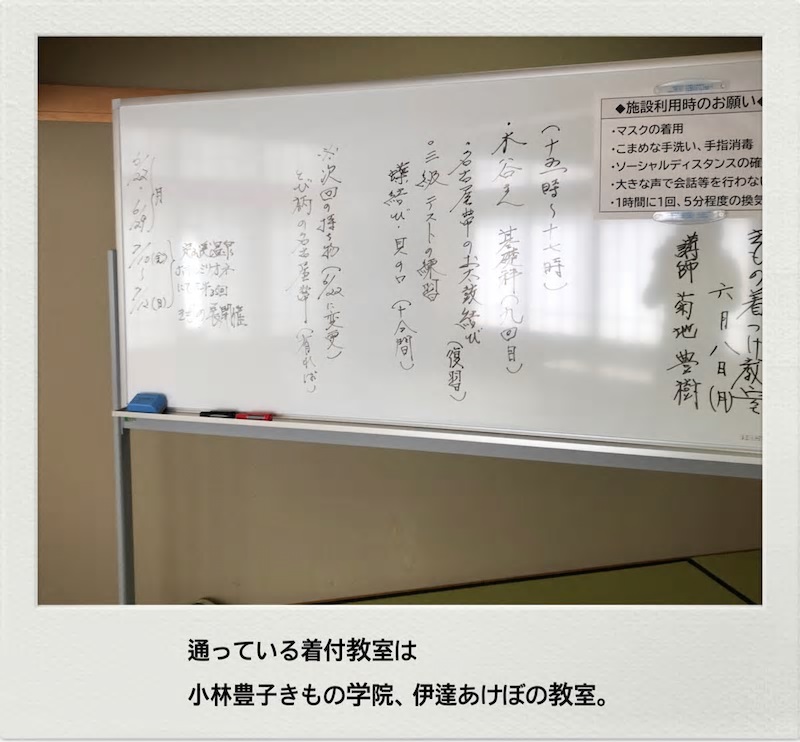 きもの着つけ教室
六月八日(月)
講師 菊地豊樹
◆施設利用時のお願い◆
・マスクの着用
・こまめな手洗い、手指消毒
・ソーシャルディスタンスの確
・大きな声で会話等を行わない
・1時間に1回、5分程度の換気
(十五時〜十七時)
・木谷さん 基礎科(九回目)
・名古屋帯のお太鼓結び(復習)
・三級テストの練習
蝶結び・貝の口(十分間)
※次回の持ち物(6/22に変更)
とび柄の名古屋帯(有れば)
6/22・6/29 月
7/10(金)〜7/12(日)
にて
展開催
通っている着付教室は
小林豊子きもの学院、伊達あけぼの教室。